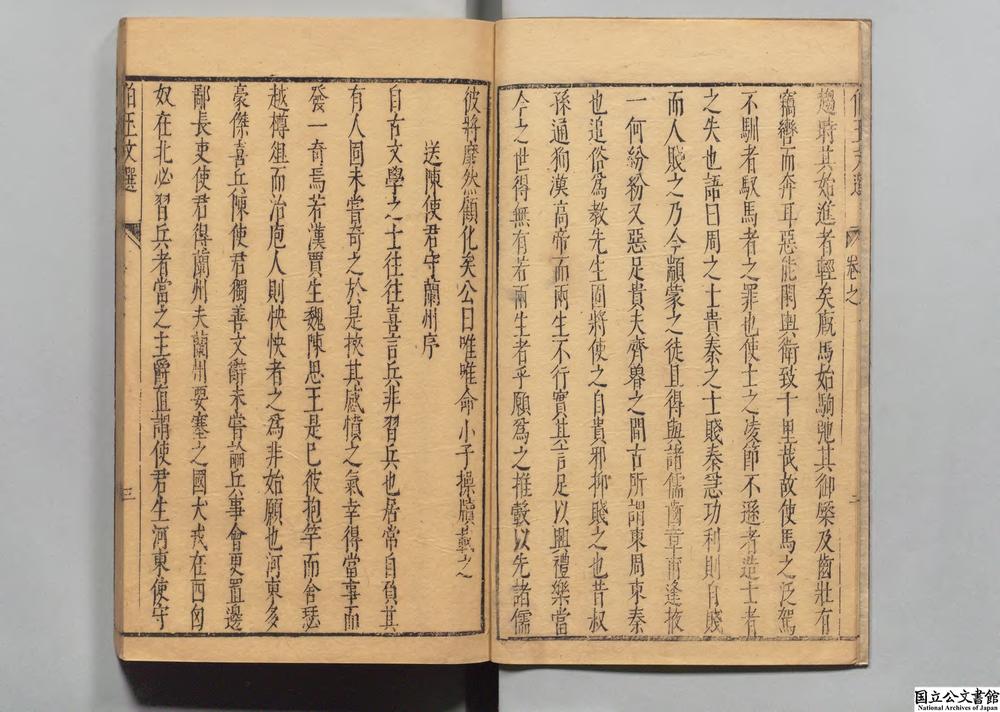 趨時其始進者輕矣厩馬始駒弛其御槩及齒壯有
竊轡而奔耳惡能閑輿衛致千里哉故使馬之泛駕
不馴者馭馬者之罪也使士之凌節不遜者造士者
之失也語曰周之士貴秦之士賤秦急功利則自賤
而人賤之乃今顓蒙之徒且得與諸儒齒章甫逢掖
一何紛紛又惡足貴夫齊魯之間古所謂東周東秦
也追俗為教先生固將使之自貴邪抑賤之也昔叔
孫通狥漢高帝而兩生不行實其言足以興禮樂當
今之世得無有若兩生者乎願為之推轂以先諸儒
彼將靡然顧化矣公曰唯唯命小子操牘載之
送陳使君守蘭州序
自古文學之士往往喜言兵非習兵也居常自負其
有人固未嘗奇之於是挾其感憤之氣幸得當事而
發一奇焉若漢賈生魏陳思王是已彼抱竽而舍瑟
越樽俎而治庖人則怏怏者之為非始願也河東多
豪傑喜兵陳使君獨善文辭未嘗論兵事會更置邊
鄙長吏使君得蘭州夫蘭州要塞之國犬戎在西匈
奴在北必習兵者當之主爵直謂使君生河東使守
伯玉文選
三
國立公文書館
National Archives of Japan